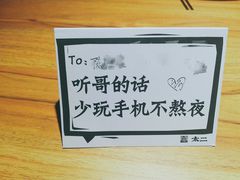 To:
听哥的话
少玩手机不熬夜
太二